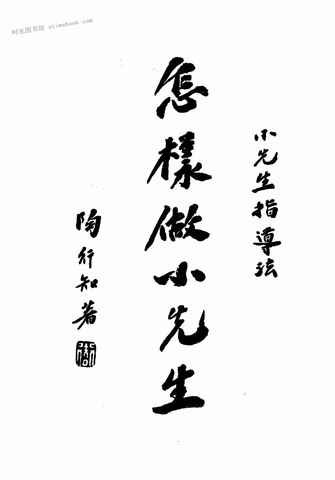 时光图书馆
小先生指導法
怎樣做小先生
陶行知著